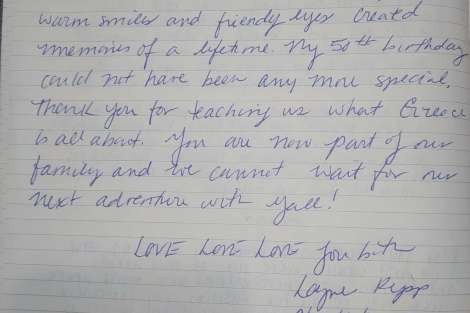 warm smiles and friendly eyes created
memories of a lifetime. My 50th birthday
could not have been any more special.
Thank you for teaching us what Greece
is all about. You are now part of our
family and we cannot wait for our
next adventure with yall!
LOVE LOVE LOVE you both
Layne Ripp